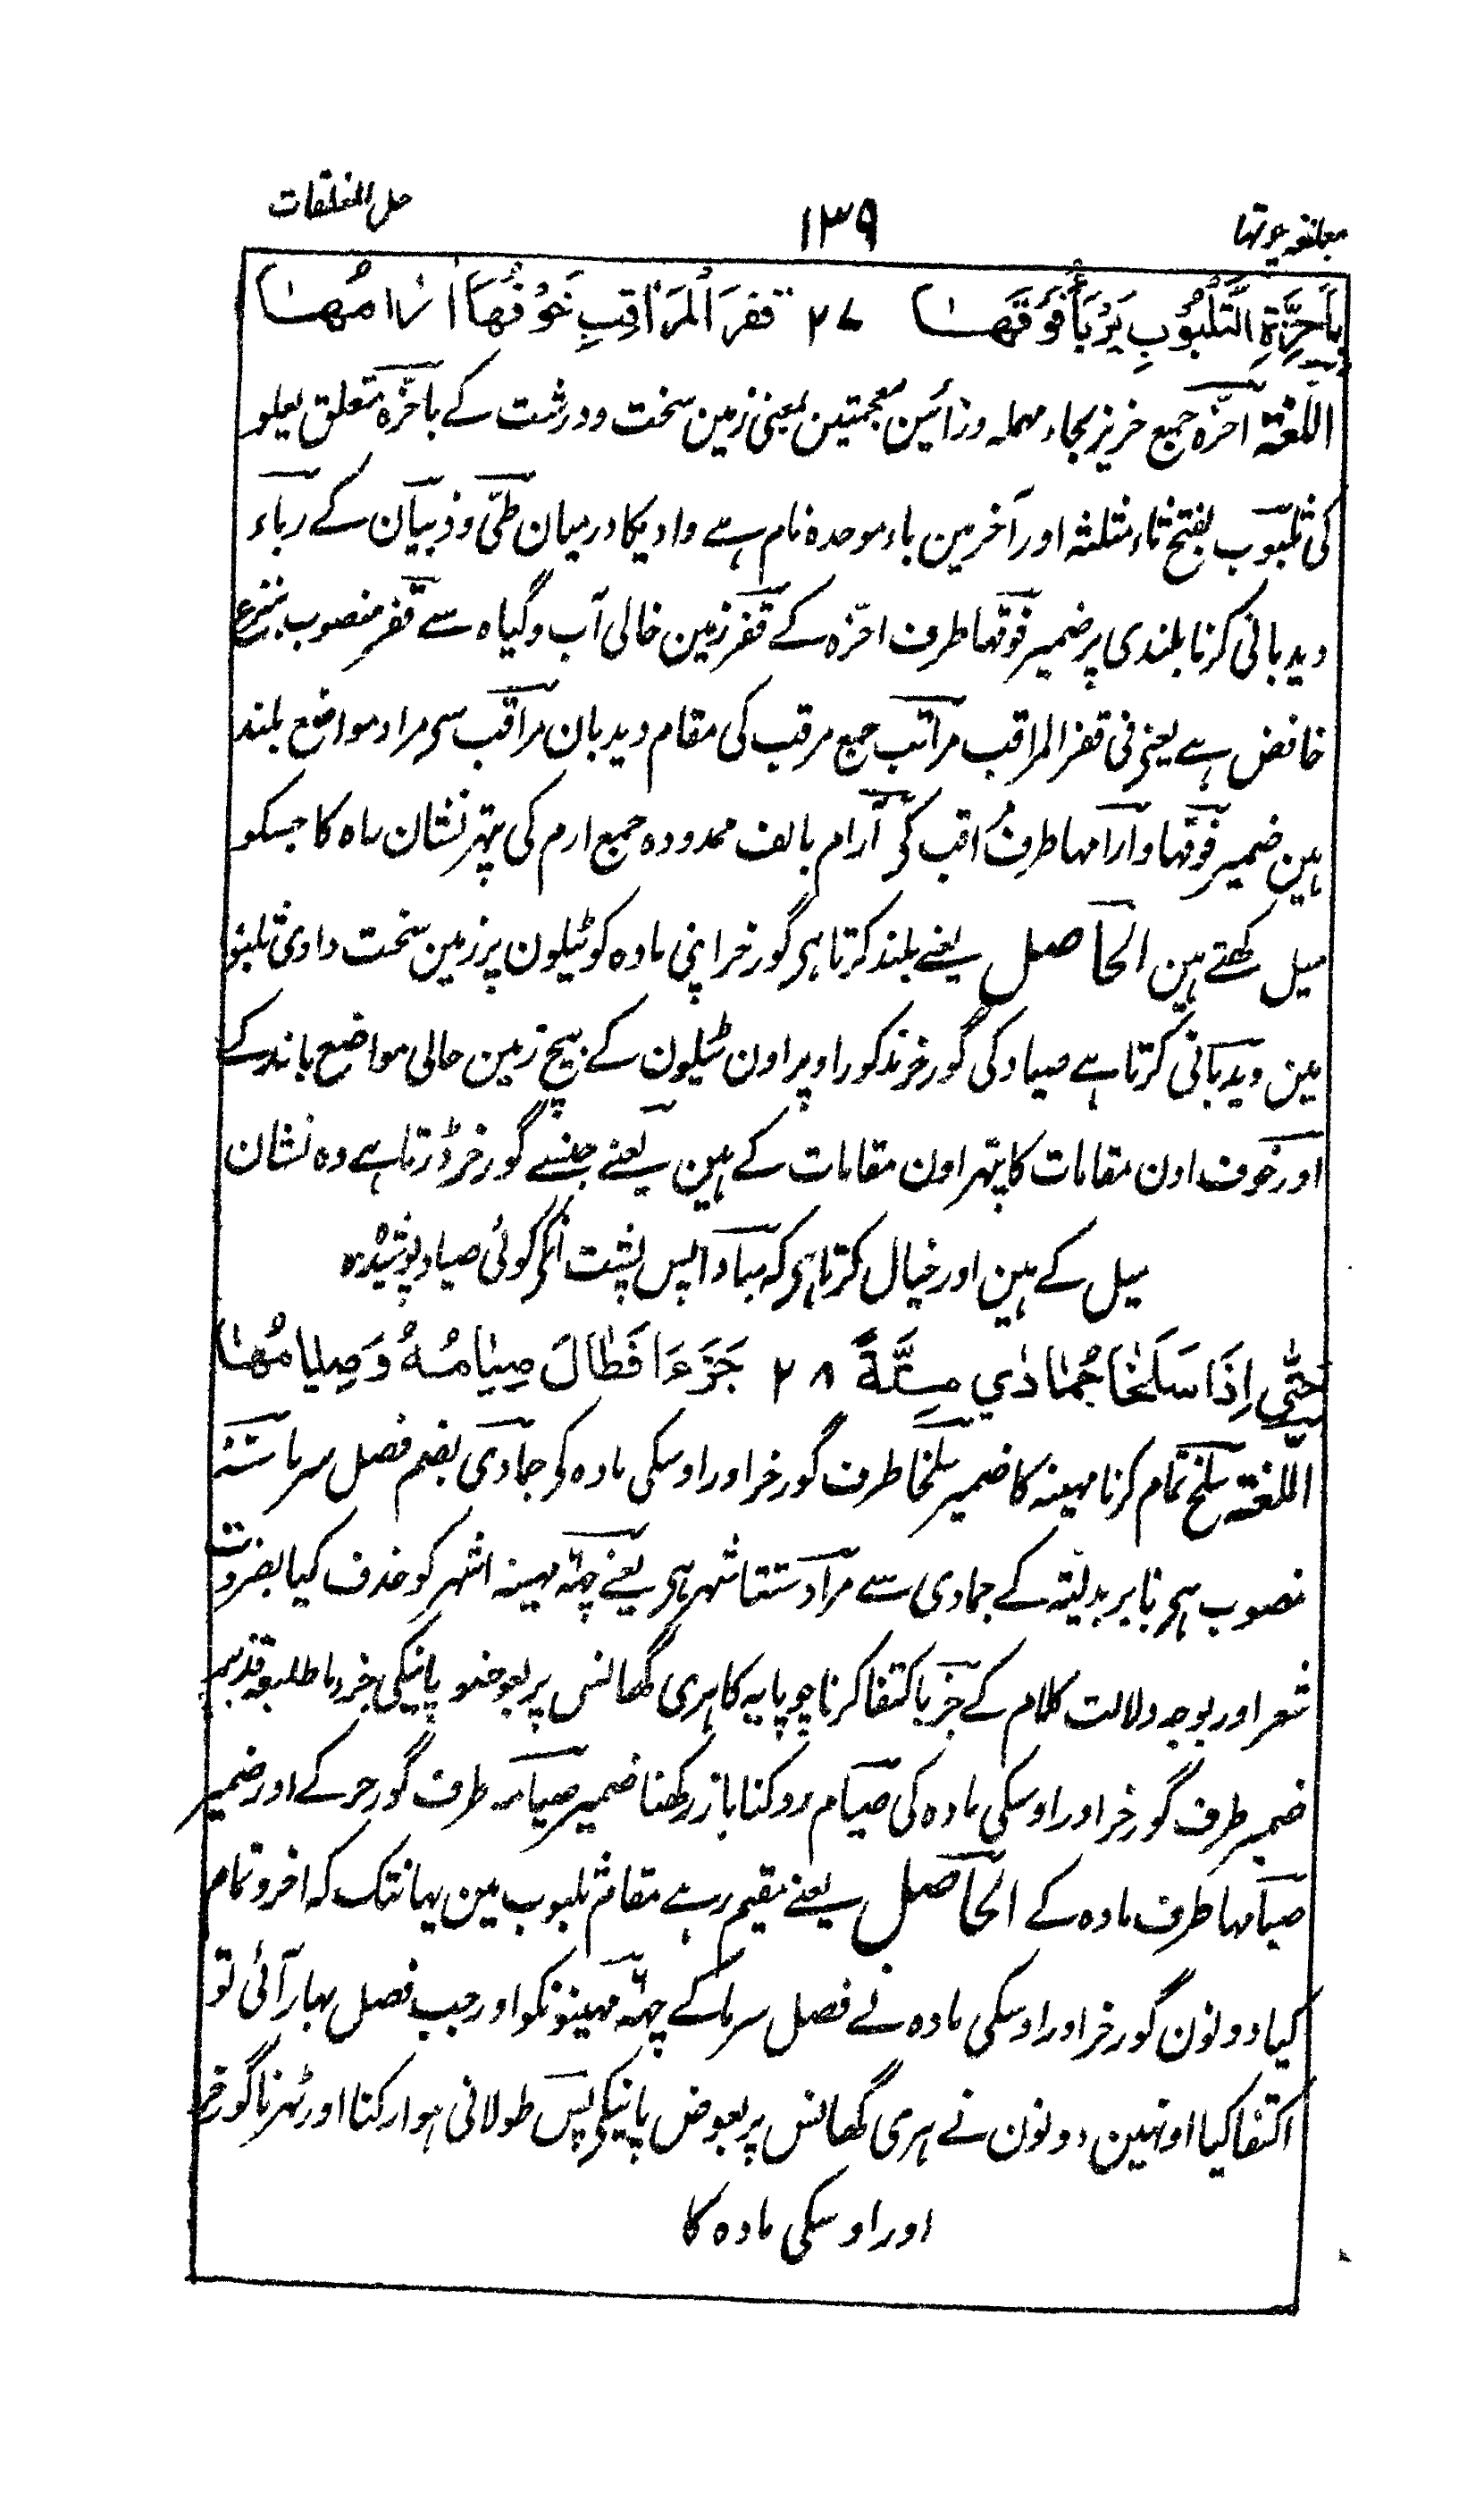 معلقہ چوتھا ۱۳۹ حل المغلقات
بِأَحِزَّةِ الثَّلَبُوْبِ يَرْبَأُ فَوْقَهَا ۲۷ قَفْرَ الْمَرَاقِبِ خَوْفُهَا اٰرَامُهَا
اللّغۃ احزّہ جمع خریز بجاء مہملہ وزائین معجمتین بمعنی زمین سخت و درشت کے باحزّہ متعلق یعلو
کی ثلبوب بفتح ثاء مثلثہ اور آخر مین باء موحدہ نام ہے وادیکا درمیان طی و ذبیان کے رباء
دید بانی کرنا بلندی پر ضمیر فوقہا طرف احزّہ کے قفر زمین خالی آب و گیاہ سے قفر منصوب بنزع
خافض ہے یعنی فی قفر المراقب مراقب جمع مرقب کی مقام دیدبان مراقب سی مراد مواضع بلند
ہین ضمیر فوقہا و آرامہا طرف اقب کی آرام بالف ممدودہ جمع ارم کی پتھر نشان راہ کا جسکو
میل کہتے ہین الحاصل یعنے بلند کرتا ہی گورخر اپنی مادہ کو ٹیلون پر زمین سخت وادی ثلبو
مین دیدبانی کرتا ہے صیاد کی گورخر مذکور اوپر اون ٹیلون کے بیچ زمین خالی مواضع بلند کے
اور خوف اون مقامات کا پتھر اون مقامات کے ہین یعنے جنسے گورخر ڈرتا ہے وہ نشان
میل کے ہین اور خیال کرتا ہی کہ مبادا پس پشت انکی کوئی صیاد پوشیدہ
حَتّٰى اِذَا سَلَخَا جُمَادٰي سِتَّةً ۲۸ جَزَءَا فَطَالَ صِيَامُهُ وَصِيَامُهَا
اللّغۃ سلخ تمام کرنا مہینہ کا ضمیر سلخا طرف گورخر اور اوسکی مادہ کی جمادی بضم فصل سرما ستۃ
نصوب ہی بنا بر بدلیۃ کے جمادی سے مراد ستۃ اشہر ہی یعنے چھہ مہینہ اشہر کو حذف کیا بضرورت
شعر اور بوجہ دلالت کلام کے جزء اکتفا کرنا چوپایہ کا ہری گھانس پر بعوض پانیکی جزءا
ضمیر طرف گورخر اور اوسکی مادہ کی صیام روکنا باز رکھنا ضمیر صیامہ طرف گورخر کے اور ضمیر
صیامہا طرف مادہ کے الحاصل یعنے مقیم رہے مقام ثلبوب مین یہانتک کہ اخر و تمام
کیا دونون گورخر اور اوسکی مادہ نے فصل سرما کے چھہ مہینونکو اور جب فصل بہار آئی تو
اکتفا کیا اونہین دونون نے ہری گھانس پر بعوض پانیکی پس طولانی ہوا رکنا اور ٹہرنا گورخر
اور اوسکی مادہ کا